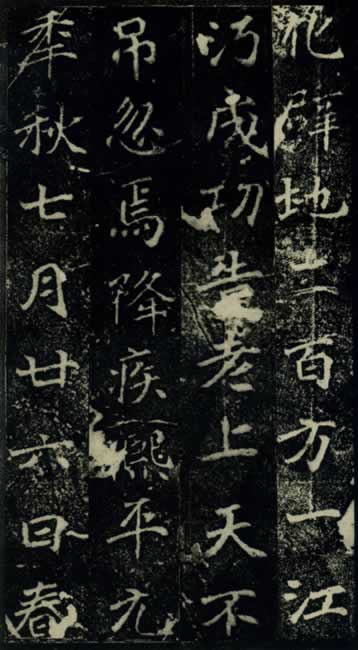 化辟地二百方一江
沔成功告老上天不
弔忽焉降疾熙平元
年秋七月廿六日春